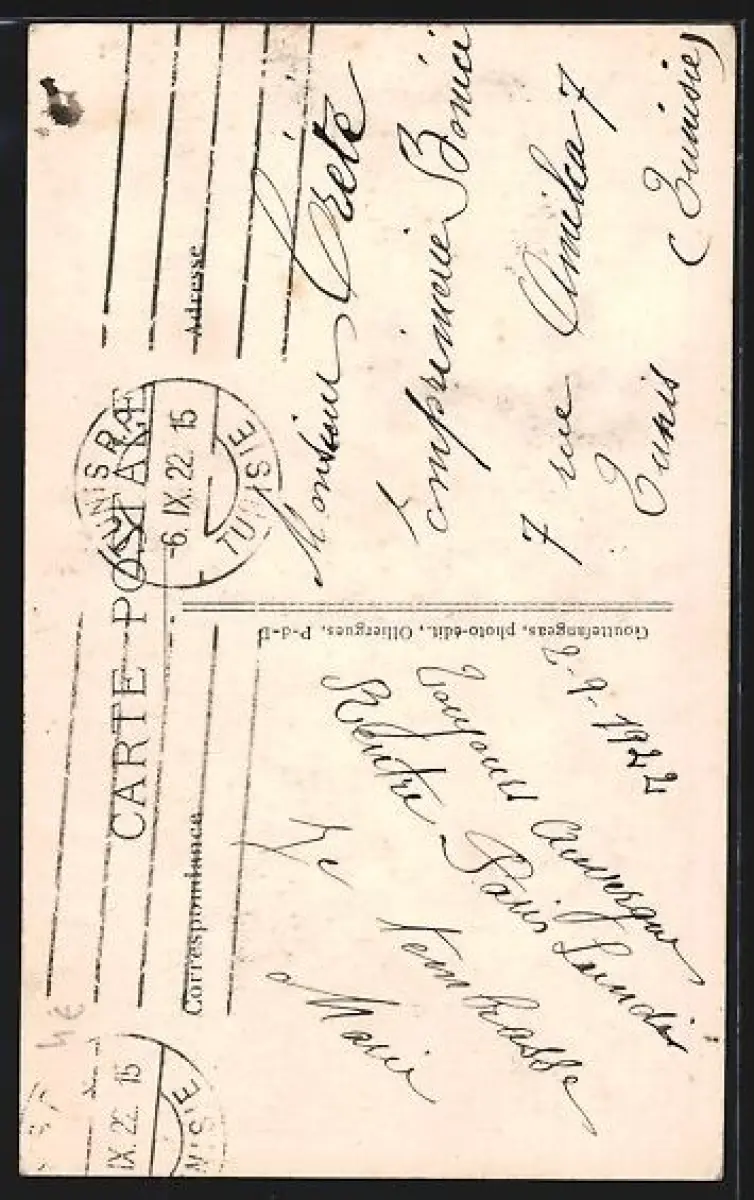 CARTE POSTALE
Correspondance
Adresse
TUNIS R.P.
-6.IX.22 15
TUNISIE
IX.22 15
2-9-1922
Toujours Auvergne
Rentre Paris Lundi
Je t'embrasse
Marie
Gouttefangeas, photo-édit., Olliergues, P-d-D
Monsieur Crété
Imprimerie Bonici
7 rue Amilcar 7
Tunis (Tunisie)